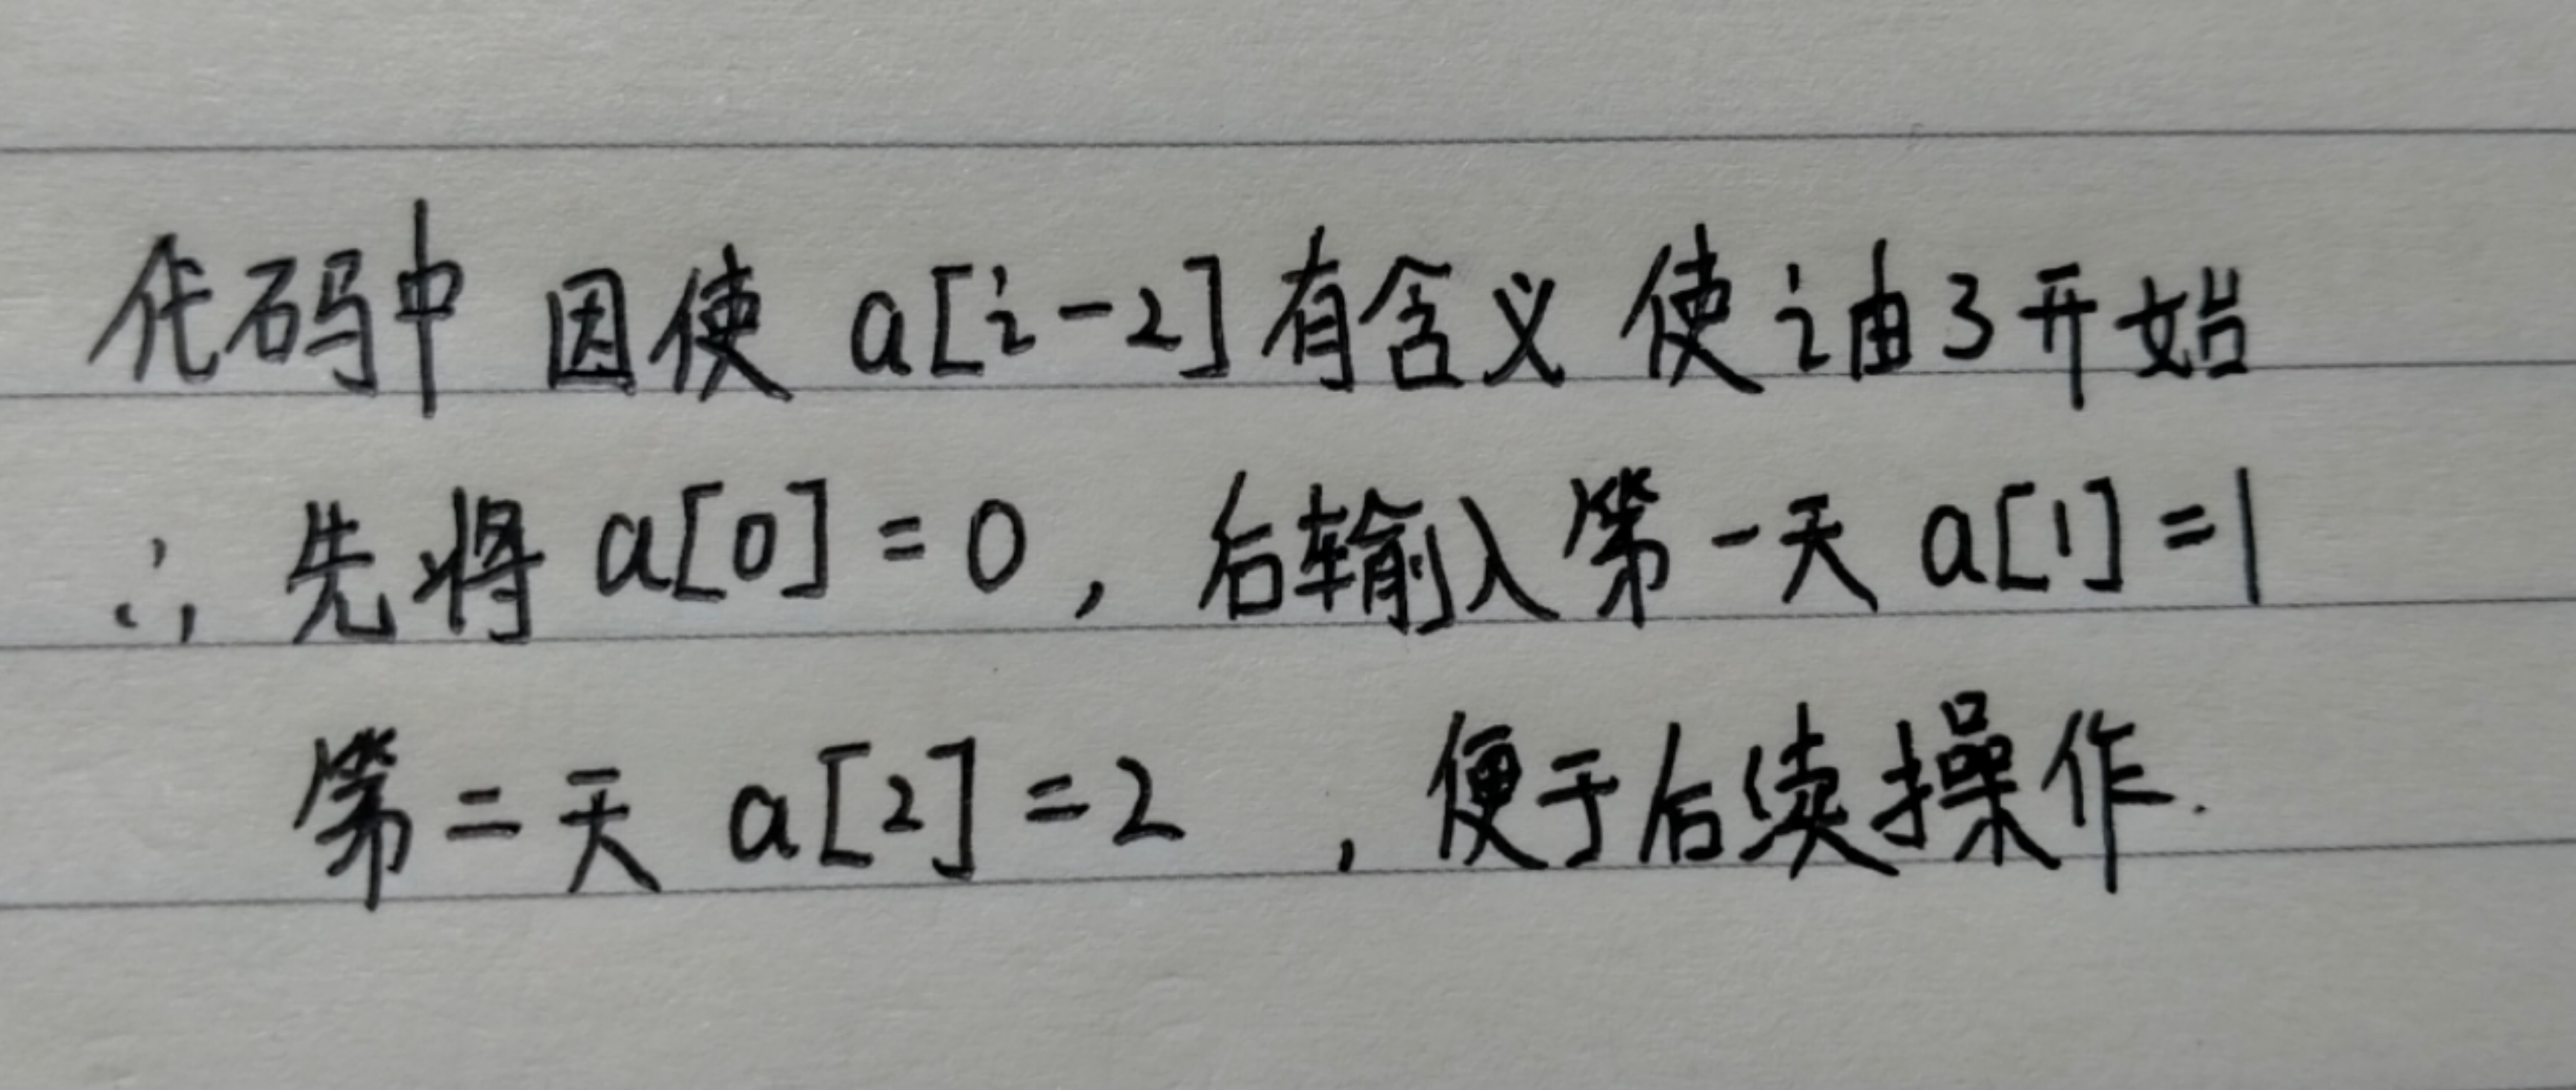 代码中 因使 a[i-2]有含义 使i由3开始
∴ 先将 a[0]=0, 后输入第一天 a[1]=1
第二天 a[2]=2 ,便于后续操作.